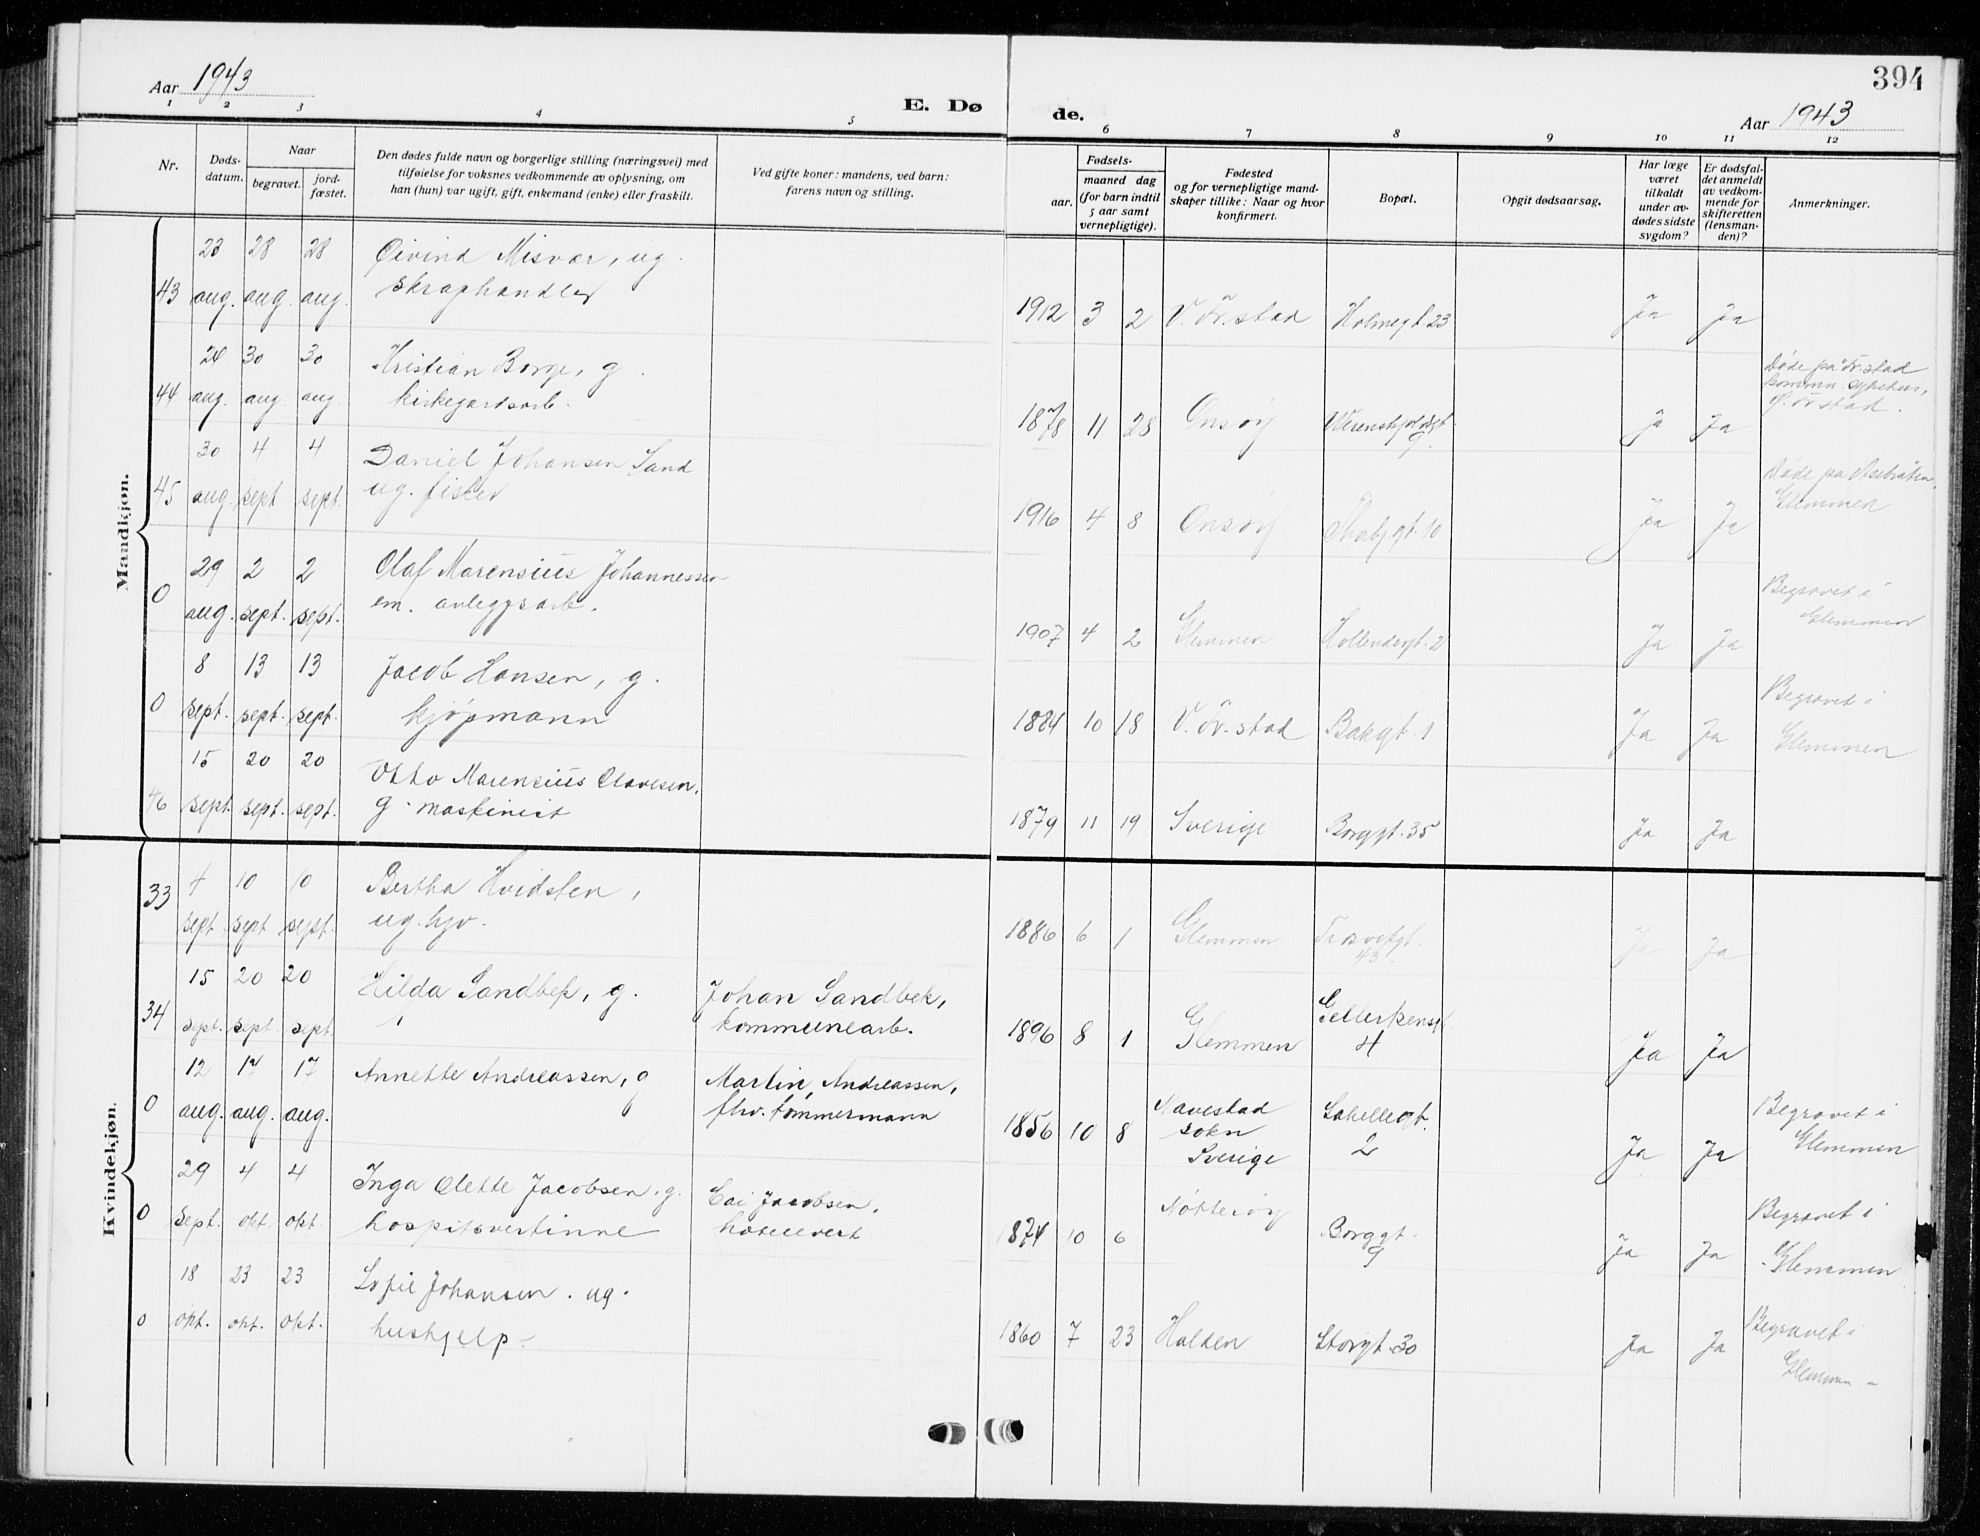 Aar 1943
E. Dø
de.
Aar 1943
394
1 2 3 4 5
6 7 8 9 10 11 12
Nr.
Døds-
datum.
Naar
begravet.
jord-
fæstet.
Den dødes fulde navn og borgerlige stilling (næringsvei) med
tilføielse for voksnes vedkommende av oplysning, om
han (hun) var ugift, gift, enkemand (enke) eller fraskilt.
Ved gifte koner: mandens, ved barn:
farens navn og stilling.
Fødsels-
aar.
maaned dag
(for barn indtil
5 aar samt
vernepligtige).
Fødested
og for vernepligtige mand-
skaper tillike: Naar og hvor
konfirmert.
Bopæl.
Opgit dødsaarsag.
Har læge
været
tilkaldt
under av-
dødes sidste
sygdom?
Er dødsfal-
det anmeldt
av vedkom-
mende for
skifteretten
(lensman-
den)?
Anmerkninger.
Mandkjøn.
23 28 28 Øivind Misvær, ug.
43 aug. aug. aug. skraphandler
1912 3 2 V. Fr.stad Holmegt. 23 Ja Ja
30 30 Kristian Borge, g.
44 aug. aug. aug. kirkegardsarb.
1878 11 28 Onsøy 9. Ja Ja
Døde på Fr.stad
kommn. sykehus,
Fr.stad.
30 4 4 Daniel Johansen Sand
45 aug. sept sept. ug. fisker
1916 4 8 Onsøy 10 Ja Ja
Døde på
Glemmen
29 2 2 Olaf Marensius Johannessen
0 aug. sept. sept. em. anleggsarb.
1907 4 2 Glemmen Hollendergt. 2 Ja Ja
Begravet i
Glemmen
8 13 13 Jacob Hansen, g.
0 sept. sept. sept. kjøpmann
1884 10 18 V. Fr.stad Bakgt. 1 Ja Ja
Begravet i
Glemmen
15 20 20 Otto Marensius Olavesen,
46 sept. sept. sept. g. maskinist
1879 11 19 Sverige Borggt. 35 Ja Ja
Kvindekjøn.
10 10 Bertha Hvidsten,
33 sept sept sept. ug. hjv.
1886 6 1 Glemmen Trosvikgt.
43. Ja Ja
15 20 20 Hilda Sandbek, g. Johan Sandbek,
34 sept. sept. sept. kommunearb.
1896 8 1 Glemmen Gellerkensgt
4 Ja Ja
12 17 17 Annette Andreassen, g Martin Andreassen,
0 aug. aug. aug. fhv. tømmermann
1856 10 8 Navestad
sokn
Sverige
2 Ja Ja
Begravet i
Glemmen
29 4 4 Inga Olette Jacobsen, g. Cai Jacobsen,
0 sept. okt. okt. hospitsvertinne hotellvert
1874 10 6 Nøtterøy Borggt.
9 Ja Ja
Begravet i
Glemmen
18 23 23 Sofie Johansen. ug.
0 okt. okt. okt. hushjelp.
1860 7 23 Halden Storgt. 30 Ja Ja
Begravet i
Glemmen